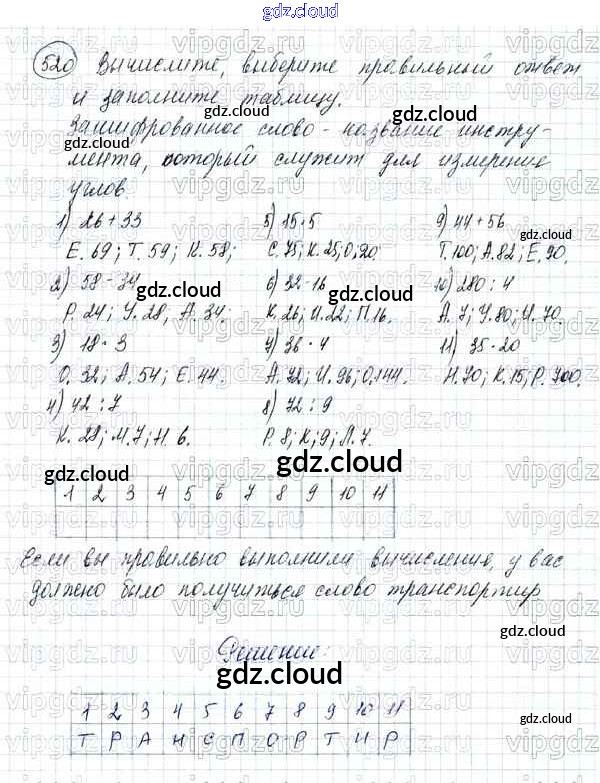 gdz.cloud
520 Вычислите, выберите правильный ответ
и заполните таблицу.
Зашифрованное слово - название инстру-
мента, который служит для измерения
углов.
1) 26 + 33
Е. 69; Т. 59; К. 58;
2) 58 - 34
Р. 24; У. 28; А. 34.
3) 18 · 3
О. 32; А. 54; Е. 44.
4) 42 : 7
К. 28; М. 7; Н 6.
5) 15 · 5
С. 75; К. 25; О. 20
6) 32 - 16
К. 26; И. 22; П 16.
7) 36 · 4
А. 72; И. 96; О. 144.
8) 72 : 9
Р. 8; К; 9; Л. 7.
9) 44 + 56
Т. 100; А. 82; Е. 90.
10) 280 : 4
А. 7; У. 80; И. 70.
11) 35 · 20
Н. 70; К. 15; Р. 700.
1 2 3 4 5 6 7 8 9 10 11
Если вы правильно выполнили вычисления, у вас
должно было получиться слово транспортир
Решение:
1 2 3 4 5 6 7 8 9 10 11
Т Р А Н С П О Р Т И Р